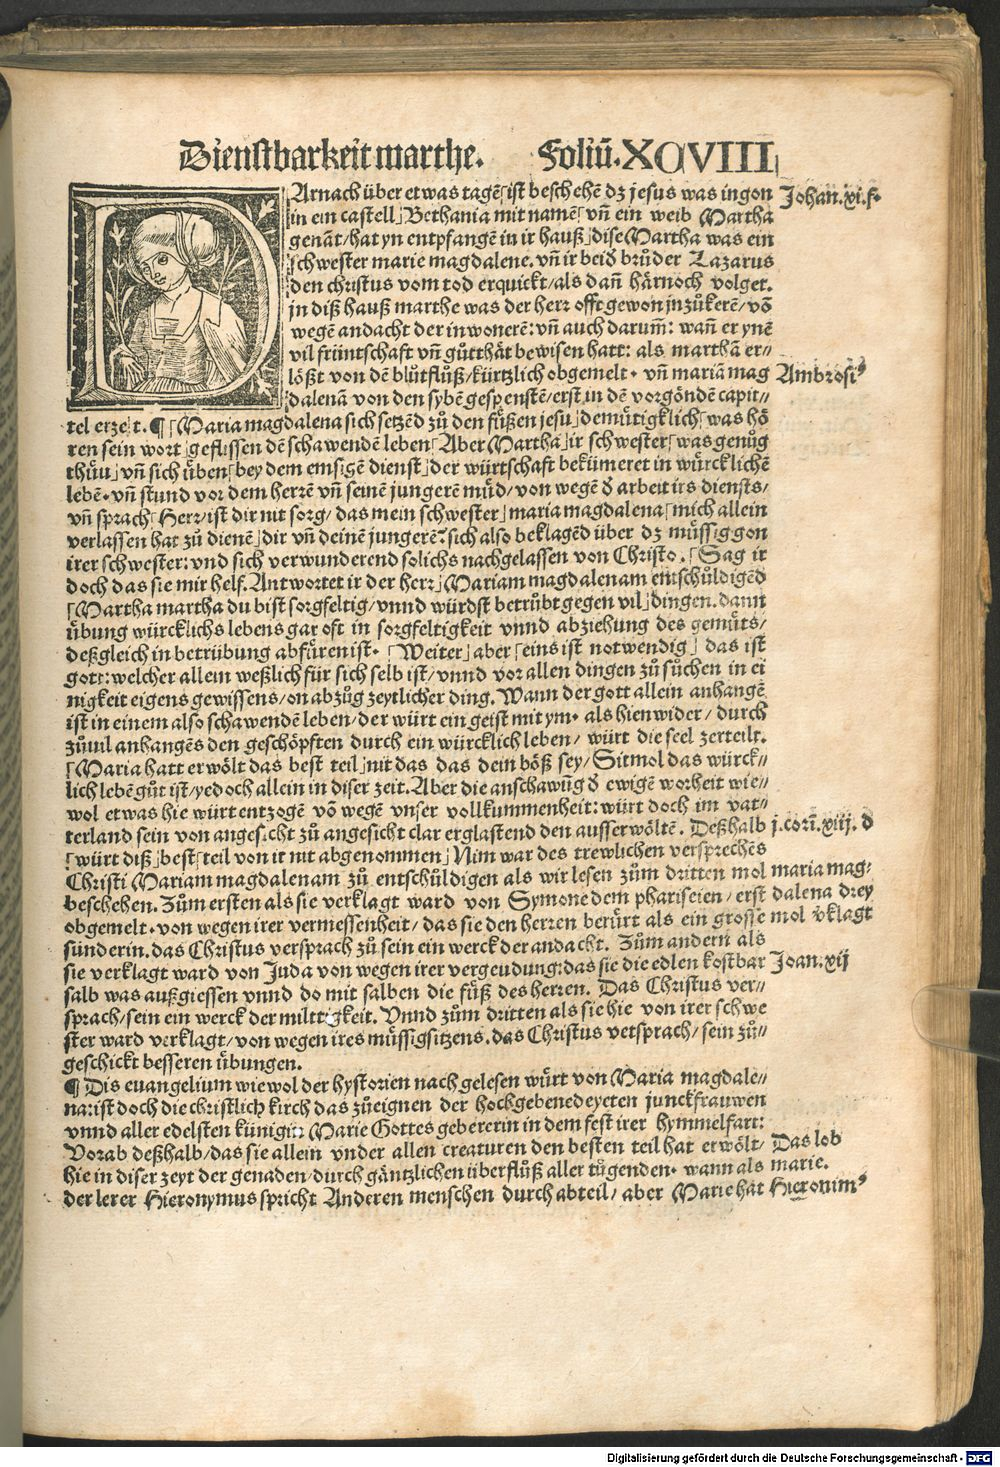 Dienstbarkeit marthe. Foliū. XCVIII
DArnach über etwas tagē ist beschehē dz jesus was ingon
in ein castell Bethania mit namē vñ ein weib Martha
genāt/hat yn entpfangē in ir hauß dise Martha was ein
schwester marie magdalene. vñ ir beid brůder Lazarus
den christus vom tod erquickt/als dañ härnoch volget.
jn diß hauß marthe was der herr offt gewon jnzůkerē/vō
wegē andacht der inwonerē: vñ auch darum̄: wañ er ynē
vil früntschaft vñ gůtthät bewisen hatt: als marthā er⸗
lößt von dē blůtflůß/kürtzlich obgemelt. vñ mariā mag
dalenā von den sybē gespenstē/erst in dē vorgöndē capit⸗
tel erzelt. ¶ Maria magdalena sich setzēd zů den fůßen jesu demütigklich was hö
ren sein wort geflissen dē schawendē leben Aber Martha ir schwester was genůg
thůn vñ sich üben bey dem emsigē dienst der würtschaft bekümeret in würcklichē
lebē. vñ stund vor dem herrē vñ seinē jungerē müd/von wegē d̄ arbeit irs diensts/
vñ sprach Herr/ist dir nit sorg/das mein schwester maria magdalena mich allein
verlassen hat zů dienē dir vñ deinē jungerē? sich also beklagēd über dz müssiggon
irer schwester: vnd sich verwunderend solichs nachgelassen von Christo. Sag ir
doch das sie mir helf. Antwortet ir der herr Mariam magdalenam entschüldigēd
Martha martha du bist sorgfeltig/vnnd würdst betrübt gegen vil dingen. dann
übung würcklichs lebens gar oft in sorgfeltigkeit vnnd abziehung des gemüts/
deßgleich in betrübung abfüren ist. Weiter aber eins ist notwendig das ist
gott: welcher allein weßlich für sich selb ist/vnnd vor allen dingen zů sůchen in ei
nigkeit eigens gewissens/on abzůg zeytlicher ding. Wann der gott allein anhangē
ist in einem also schawendē leben/der würt ein geist mit ym. als hienwider/durch
zůuil anhangēs den geschöpften durch ein würcklich leben/würt die seel zerteilt.
Maria hatt erwölt das best teil nit das das dein böß sey/Sitmol das würck⸗
lich lebē gůt ist/yedoch allein in diser zeit. Aber die anschawūg d̄ ewigē worheit wie⸗
wol etwas hie würt entzogē vō wegē vnser vollkummenheit: würt doch im vat⸗
terland sein von angesicht zů angesicht clar erglastend den ausserwöltē. Deßhalb
würt diß best teil von ir nit abgenommen Nim war des trewlichen versprechēs
Christi Mariam magdalenam zů entschüldigen als wir lesen zům dritten mol
beschehen. Zům ersten als sie verklagt ward von Symone dem phariseien/erst
obgemelt. von wegen irer vermessenheit/das sie den herren berürt als ein grosse
sünderin. das Christus versprach zů sein ein werck der andacht. Zům andern als
sie verklagt ward von Juda von wegen irer vergeudung: das sie die edlen kostbar
salb was außgiessen vnnd do mit salben die fůß des herren. Das Christus ver⸗
sprach/sein ein werck der milttigkeit. Vnnd zům dritten als sie hie von irer schwe
ster ward verklagt/von wegen ires müssigsitzens. das Christus vetsprach/sein zů⸗
geschickt besseren übungen.
¶ Dis euangelium wiewol der hystorien nach gelesen würt von Maria magdale⸗
na: ist doch die christlich kirch das zůeignen der hochgebenedeyeten junckfrauwen
vnnd aller edelsten künigin Marie Gottes gebererin in dem fest irer hymmelfart:
Vorab deßhalb/das sie allein vnder allen creaturen den besten teil hat erwölt/
hie in diser zeyt der genaden/durch gäntzlichen überflůß aller tůgenden. wann als
der lerer Hieronymus spricht Anderen menschen durch abteil/aber Marie hat
Johan. xi. f.
Ambrosiꝰ
j. cori. xiij. d
maria mag⸗
dalena drey
mol v̄klagt
Joan. xij
Das lob
marie.
Hieronimꝰ
Digitalisierung gefördert durch die Deutsche Forschungsgemeinschaft - DFG